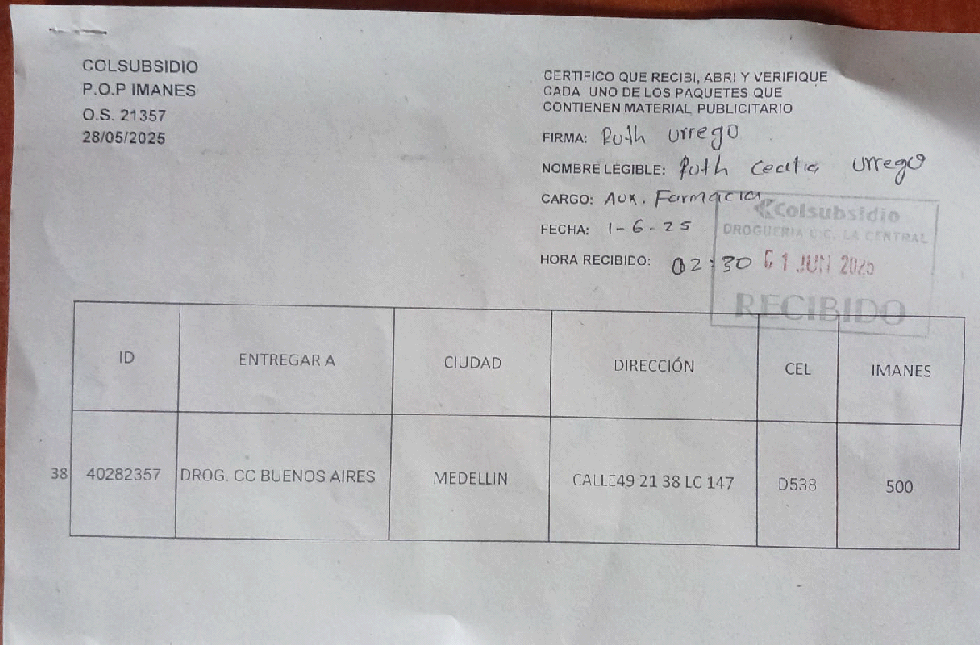 COLSUBSIDIO
P.O.P IMANES
O.S. 21357
28/05/2025
CERTIFICO QUE RECIBI, ABRI Y VERIFIQUE
CADA UNO DE LOS PAQUETES QUE
CONTIENEN MATERIAL PUBLICITARIO
FIRMA: Ruth Urrego
NOMBRE LEGIBLE: Ruth Urrego
CARGO: Aux. Farmacia
FECHA: 1-6-25
HORA RECIBIDO: 02:30
Colsubsidio
DROGUERIA LA CENTRAL
01 JUN 2025
RECIBIDO
ID ENTREGAR A CIUDAD DIRECCIÓN CEL IMANES
38 40282357 DROG. CC BUENOS AIRES MEDELLIN CALLE49 21 38 LC 147 D538 500